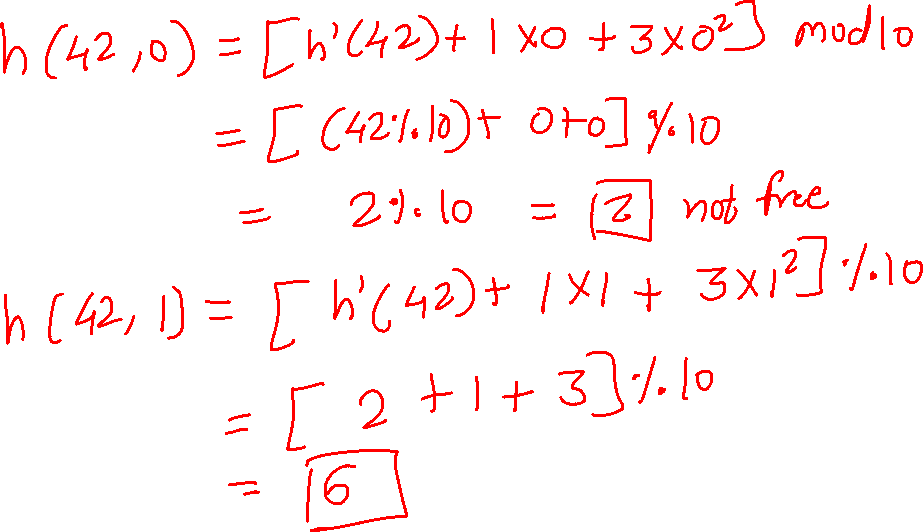 h(42,0) = [h'(42)+ 1×0 + 3×0²] mod 10
= [(42%10)+ 0+0] % 10
= 2% 10 = 2 not free
h(42, 1) = [h'(42)+ 1×1 + 3×1²] % 10
= [2 +1+ 3] % 10
= 6